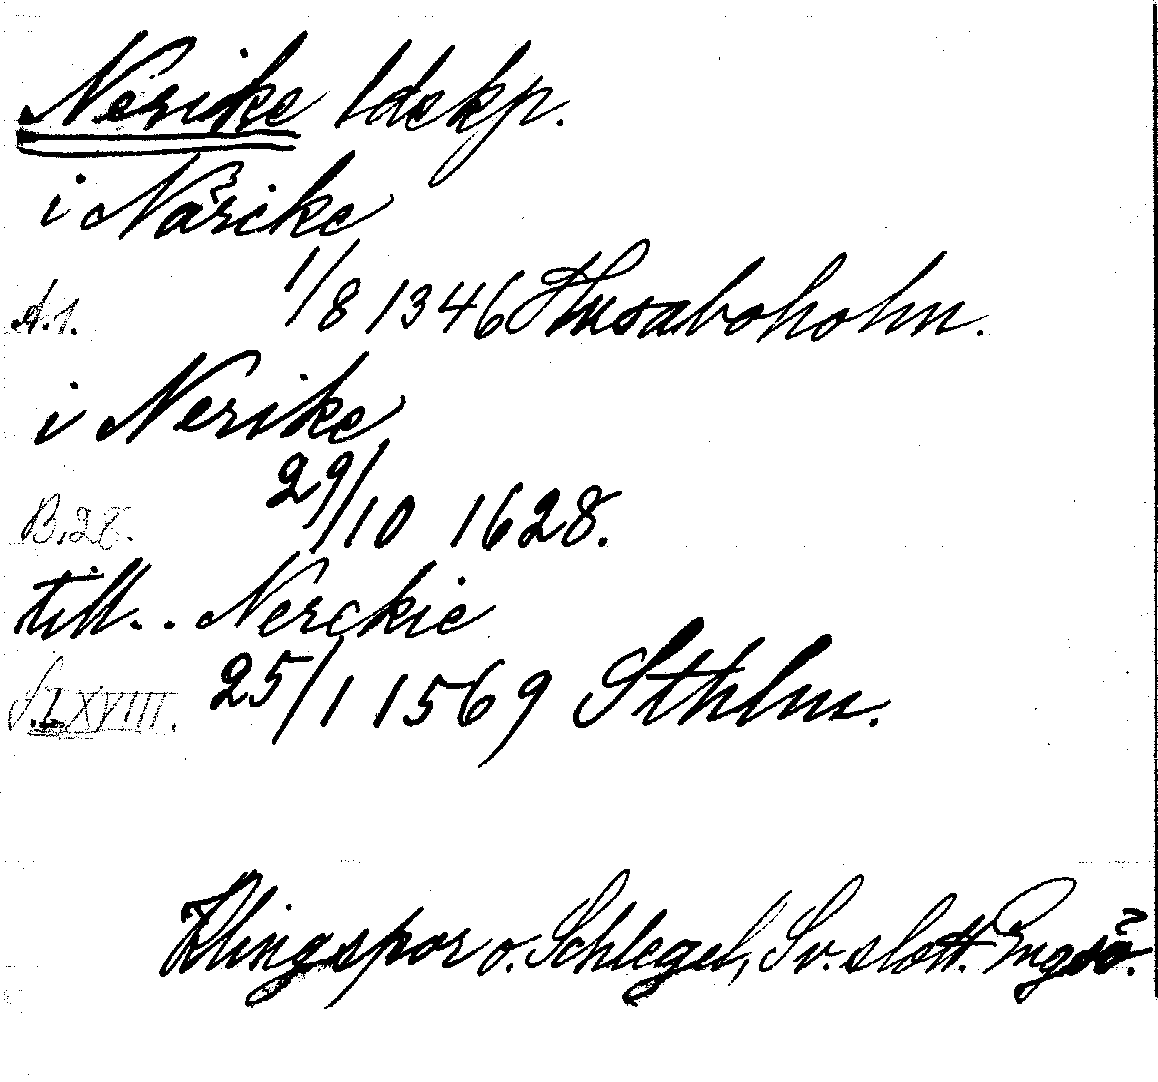 Nerike ldskp.
i Närike
A.1. 1/8 1346 Husaboholm.
i Nerike
B.28. 29/10 1628.
till.. Nerckie
LXVIII. 25/1 1569 Sthlm.
Klingspor o. Schlegel, Sv. slott. Engsö.